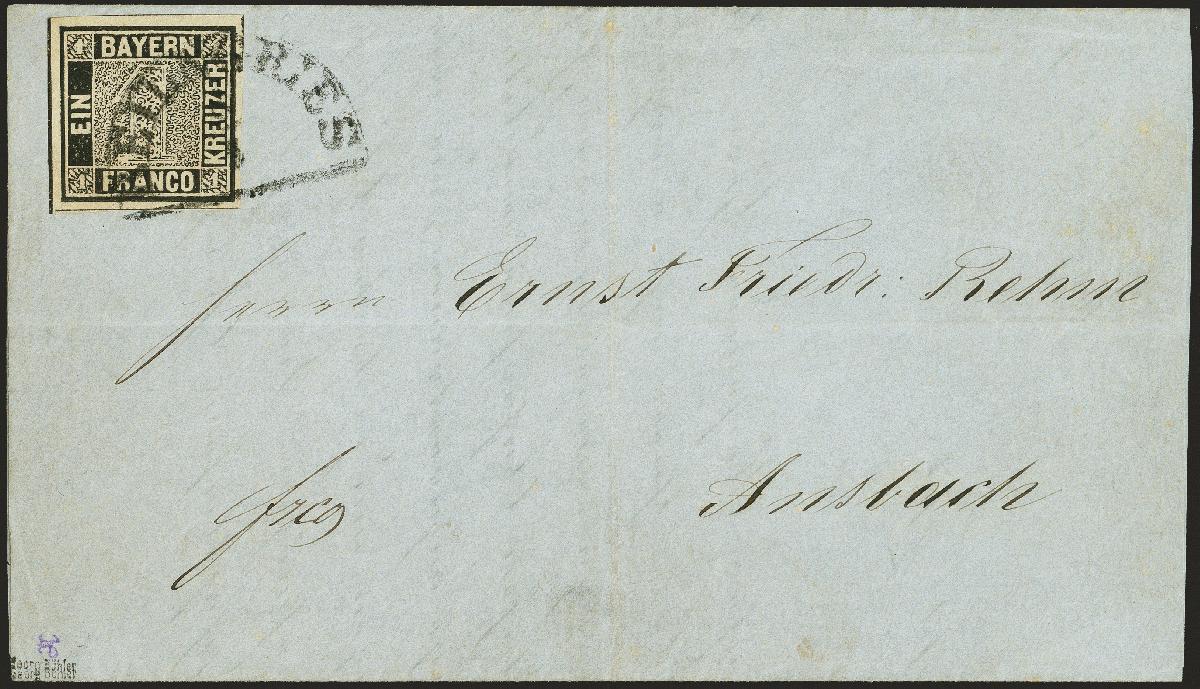 BAYERN
EIN
KREUZER
FRANCO
RIES
Herrn Ernst Friedr: Rehm
frco
Ansbach